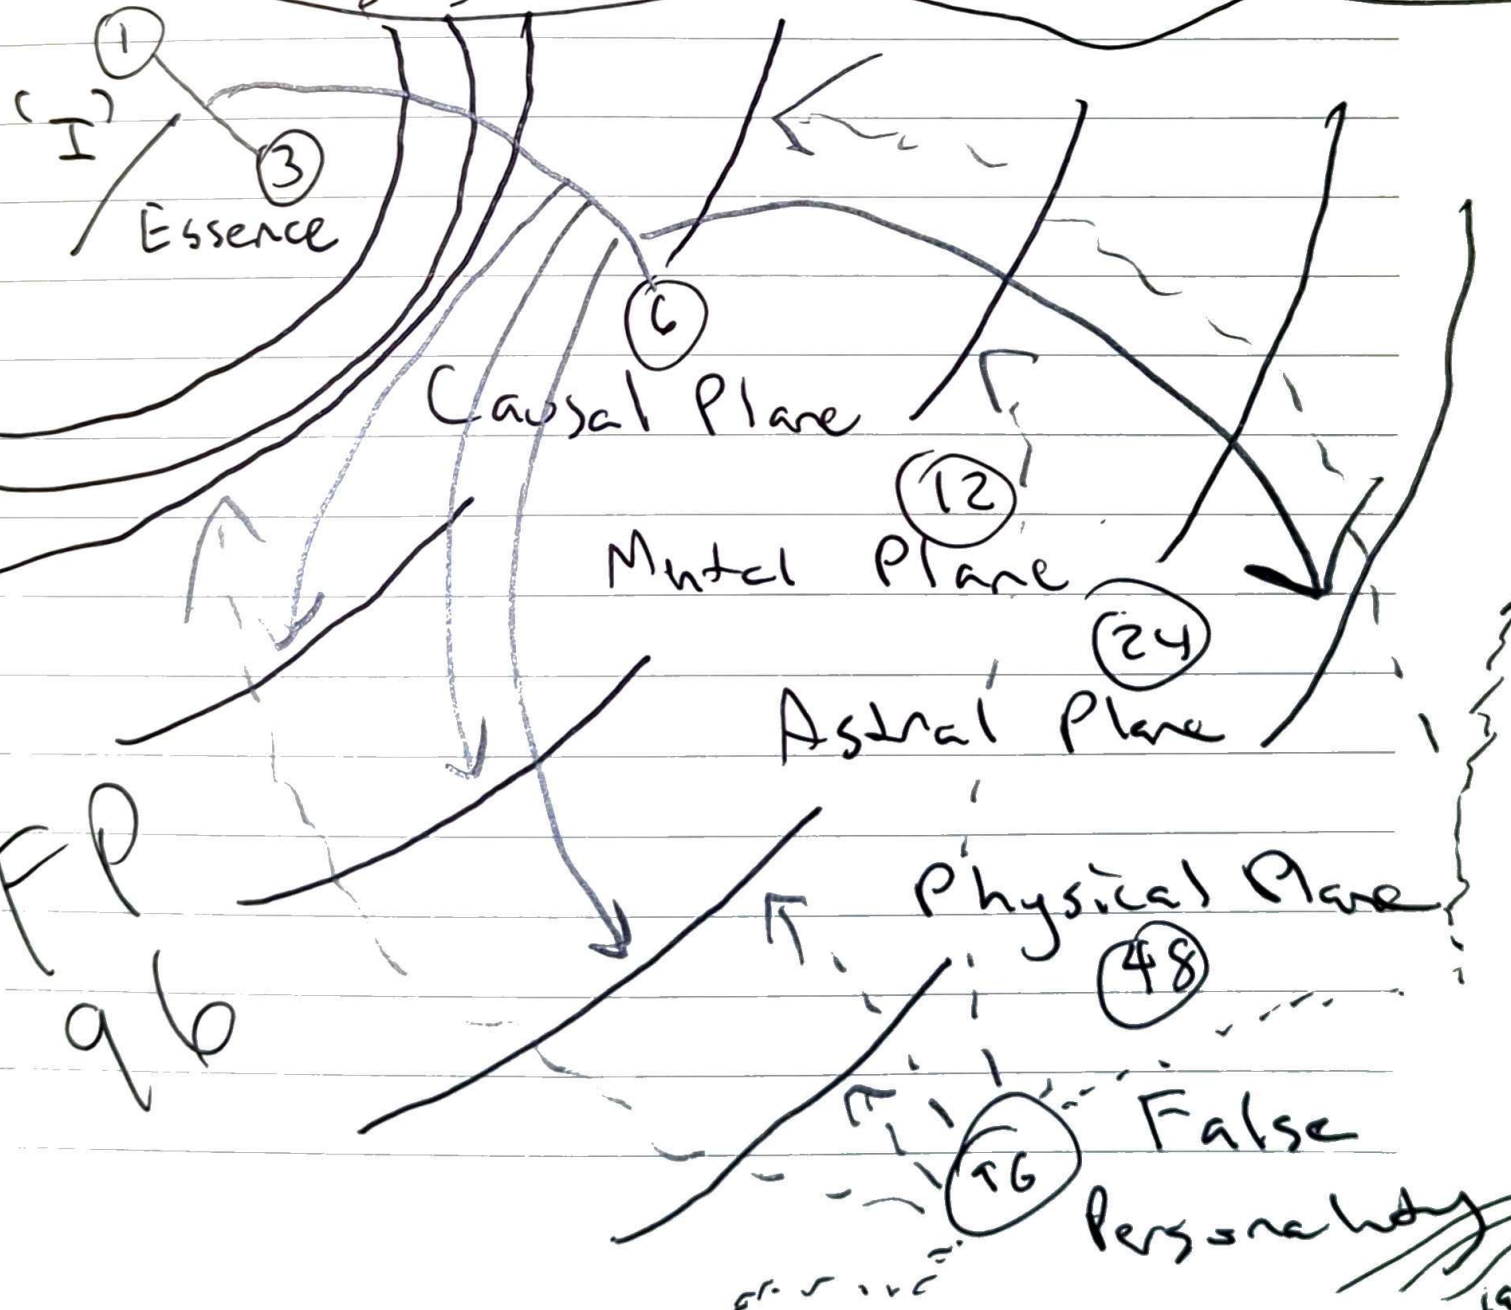 1
"I"
3
Essence
6
Causal Plane
12
Mental Plane
24
Astral Plane
Physical Plane
48
FP
96
96
False
Personality